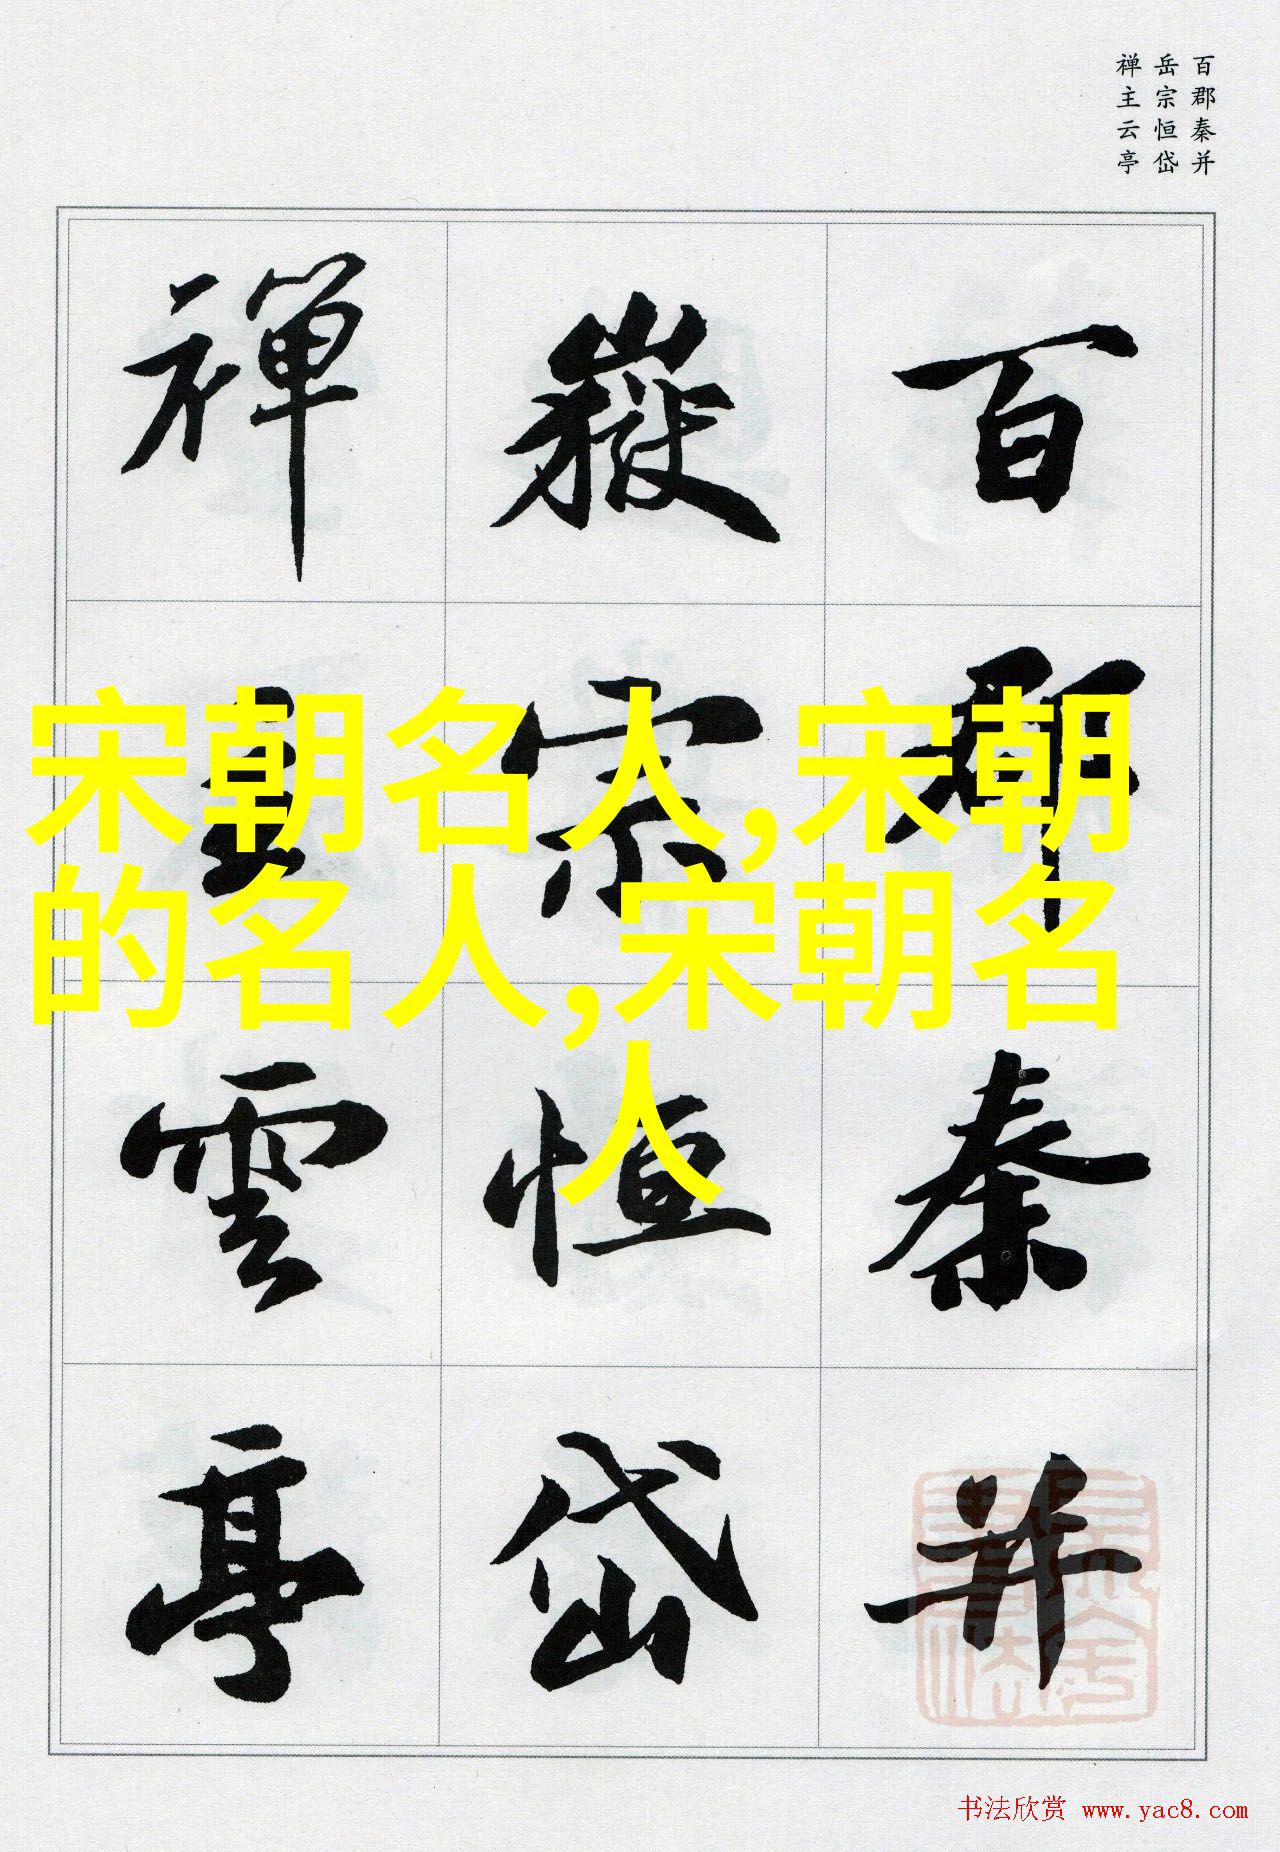 百郡秦并
岳宗恒岱
禅主云亭
百郡秦并
嶽宗恒岱
禪主雲亭
宋朝名人,宋朝
的名人,宋朝名
人
书法欣赏 www.yac8.com